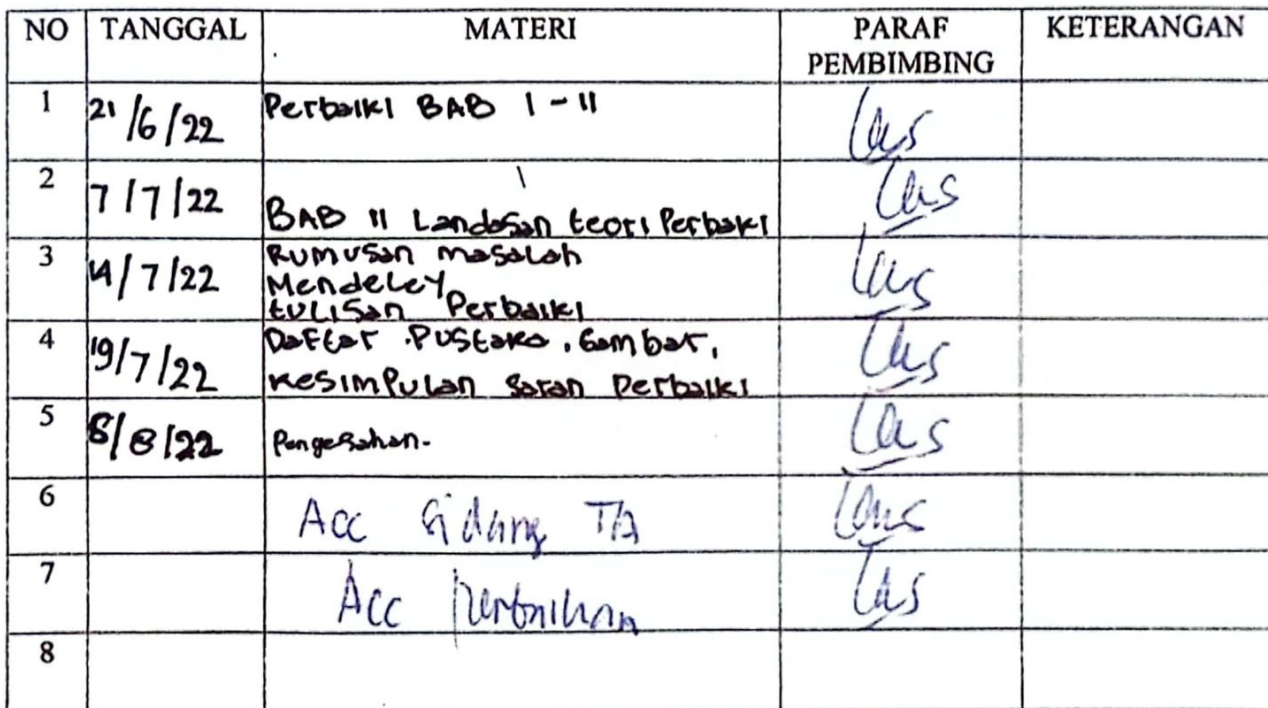 NO TANGGAL MATERI PARAF PEMBIMBING KETERANGAN
1 21/6/22 Perbaiki BAB I - II
2 7/7/22 BAB II Landasan teori Perbaki
3 14/7/22 Rumusan masalah
Mendeley
tulisan Perbaiki
4 19/7/22 Daftar Pustaka, Gambar,
kesimpulan saran Perbaiki
5 8/8/22 Pengesahan.
6 Acc Sidang TA
7 Acc Perbaikan
8